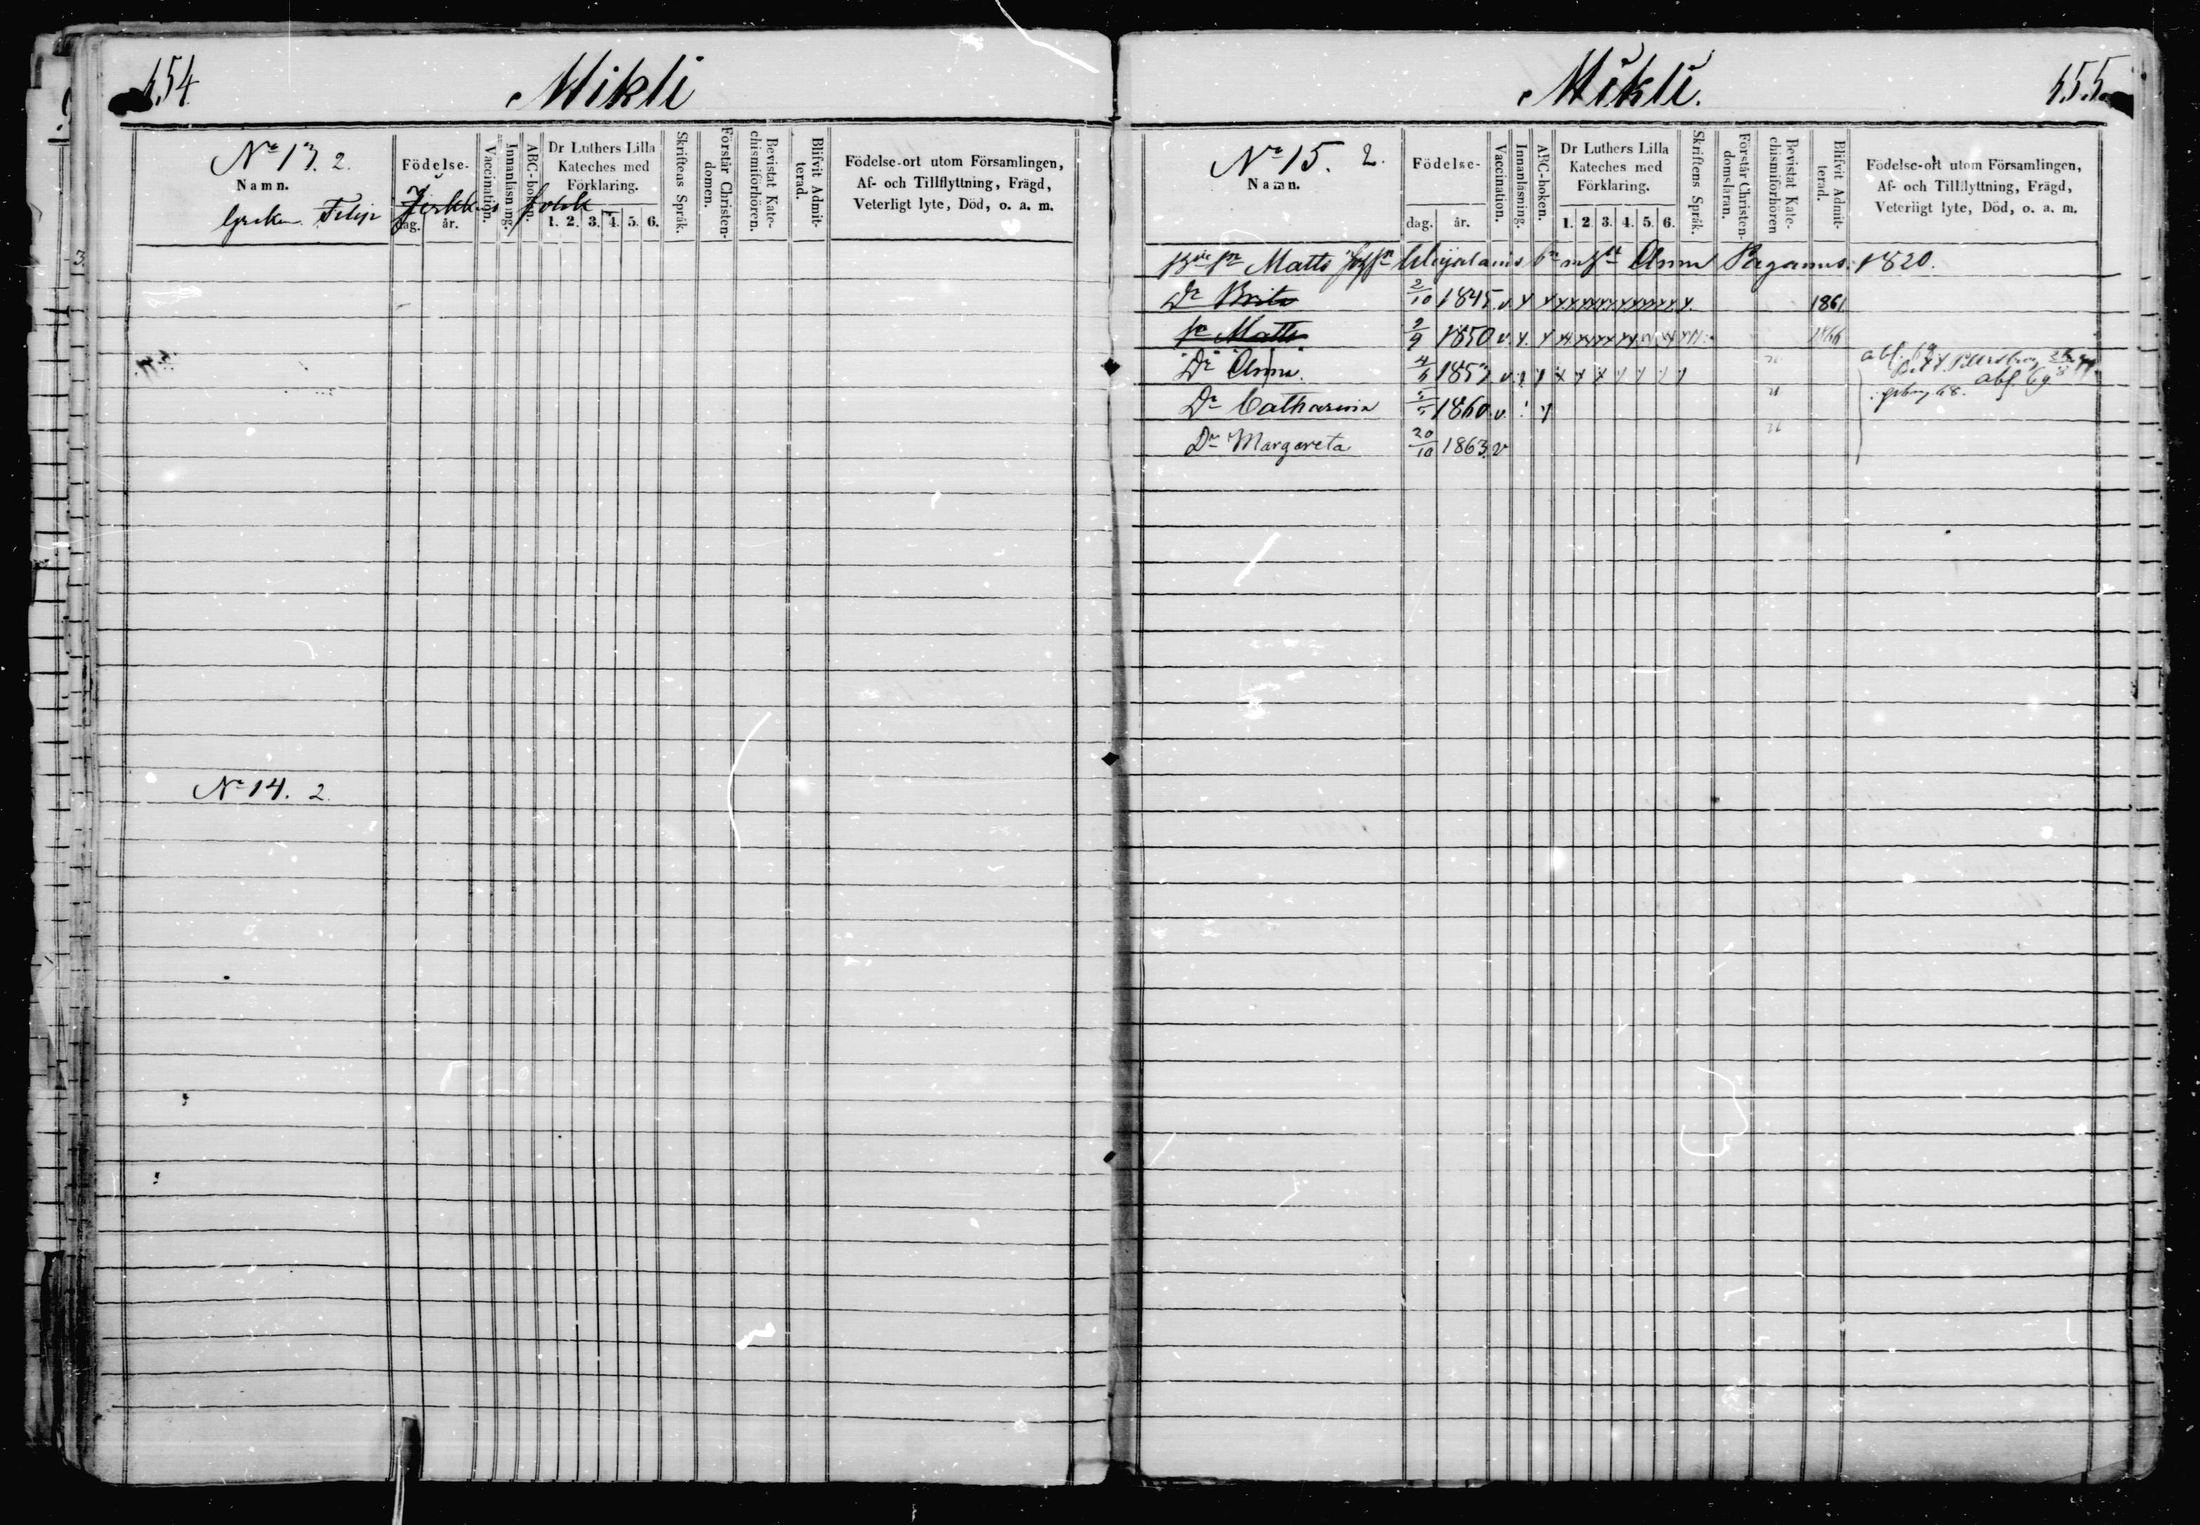 154
Mikli
No 13. 2.
Namn.
Födelse-
dag. år.
Vaccination.
Innanläsning.
ABC-boken.
Dr Luthers Lilla
Kateches med
Förklaring.
1. 2. 3. 4. 5. 6.
Skriftens Språk.
Förstår Christen-
domen.
Bevistat Kate-
chismiförhören.
Blifvit Admit-
terad.
Födelse-ort utom Församlingen,
Af- och Tillflyttning, Frägd,
Veterligt lyte, Död, o. a. m.
Greken Filip
No 14. 2.
Mikli.
155.
No 15. 2.
Namn.
Födelse-
dag. år.
Vaccination.
Innanläsning.
ABC-boken.
Dr Luthers Lilla
Kateches med
Förklaring.
1. 2. 3. 4. 5. 6.
Skriftens Språk.
Förstår Christen-
domsläran.
Bevistat Kate-
chismiförhören
Blifvit Admit-
terad.
Födelse-ort utom Församlingen,
Af- och Tillflyttning, Frägd,
Veterligt lyte, Död, o. a. m.
Matts Anna Paganus. 1820.
Dr Brita 2/10 1845. v x x x x x x x x x 1861
sn Matts 2/9 1850 v. x. x x x x x x x 1866
Dr Anna. 4/6 1853 v
Dr Catharina 1860 v
Dr Margareta 20/10 1863. v